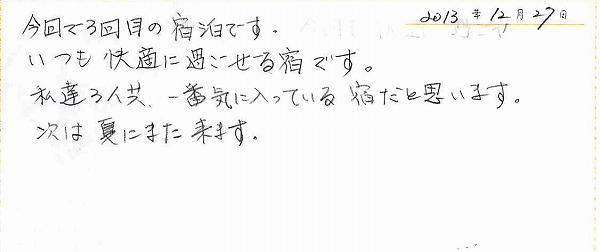 2013年12月27日
今回で3回目の宿泊です.
いつも快適に過ごせる宿です。
私達3人共、一番気に入っている宿だと思います。
次は夏にまた来ます。